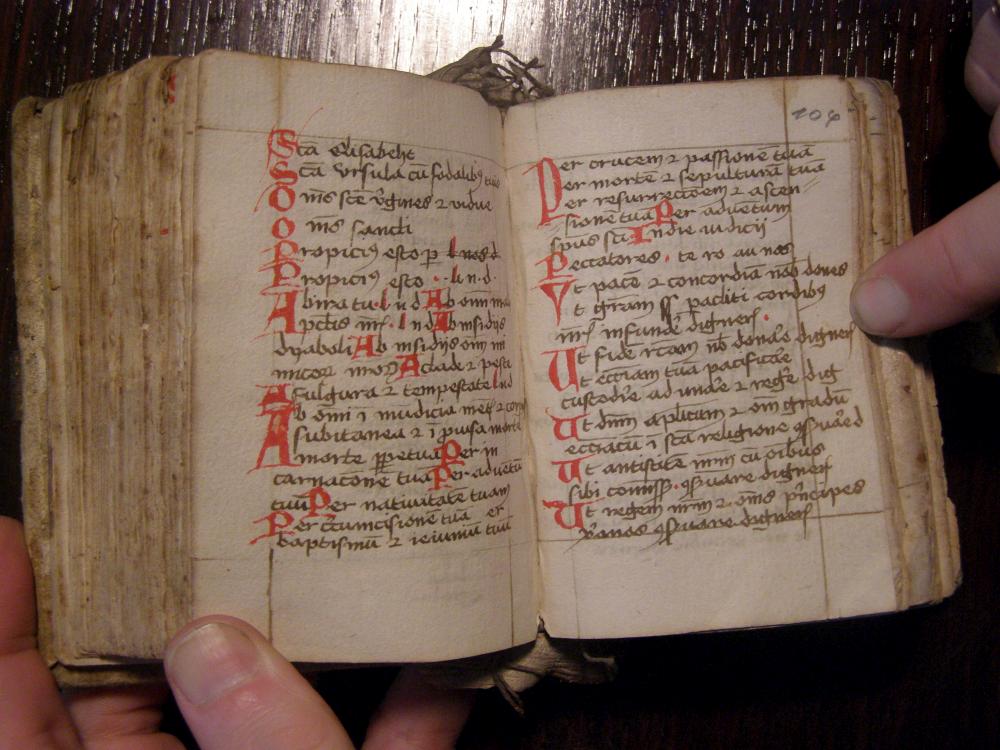 Sca elisabeht
Sca vrsula cu sodalibꝰ tuis
Oms sce vgines ⁊ vidue
Oms sancti
Propiciꝰ esto p l nos d
Propiciꝰ esto · l n d ·
Ab ira tua l n d Ab omi ma
A pctis nris l n d Ab insidijs
dyaboli Ab insidijs omi ini
micor nror A clade ⁊ peste
A fulgura ⁊ tempestate l n d
Ab omi i mudicia met ⁊ corp
A subitanea ⁊ i puisa morte
A morte ppetua Per in
carnacone tua Per adventu
tuu Per nativitate tuam
Per ccumcisione tua er
baptismu ⁊ ieiuniu tuu
104
Per crucem ⁊ passione tua
Per morte ⁊ sepultura tua
Per resurrectoem ⁊ ascen
sione tua Per adventum
spus sci In die iudicij
Peccatores · te ro au nos
Vt pace ⁊ concordia nob dones
Vt gram sps pacliti cordibꝰ
nris infunde digneris ·
Ut fide rcam nb donado digneris
Ut ecciam tua pacificare
custodire ad unare ⁊ rege dig
Ut dnm aplicum ⁊ om gradu
ecciacu i sca religione qseruare d
Ut antistite nrm cu oibus
sibi comiss · qseruare digneris
Ut regem nrm ⁊ oms pncipes
xpianos qseruare digneris